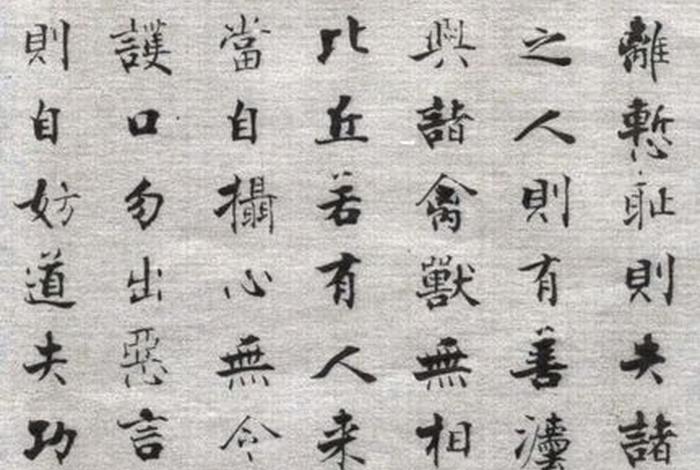 離慙耻則失諸
之人則有善灋
與諸禽獸無相
比丘若有人来
當自攝心無令
護口勿出惡言
則自妨道失功